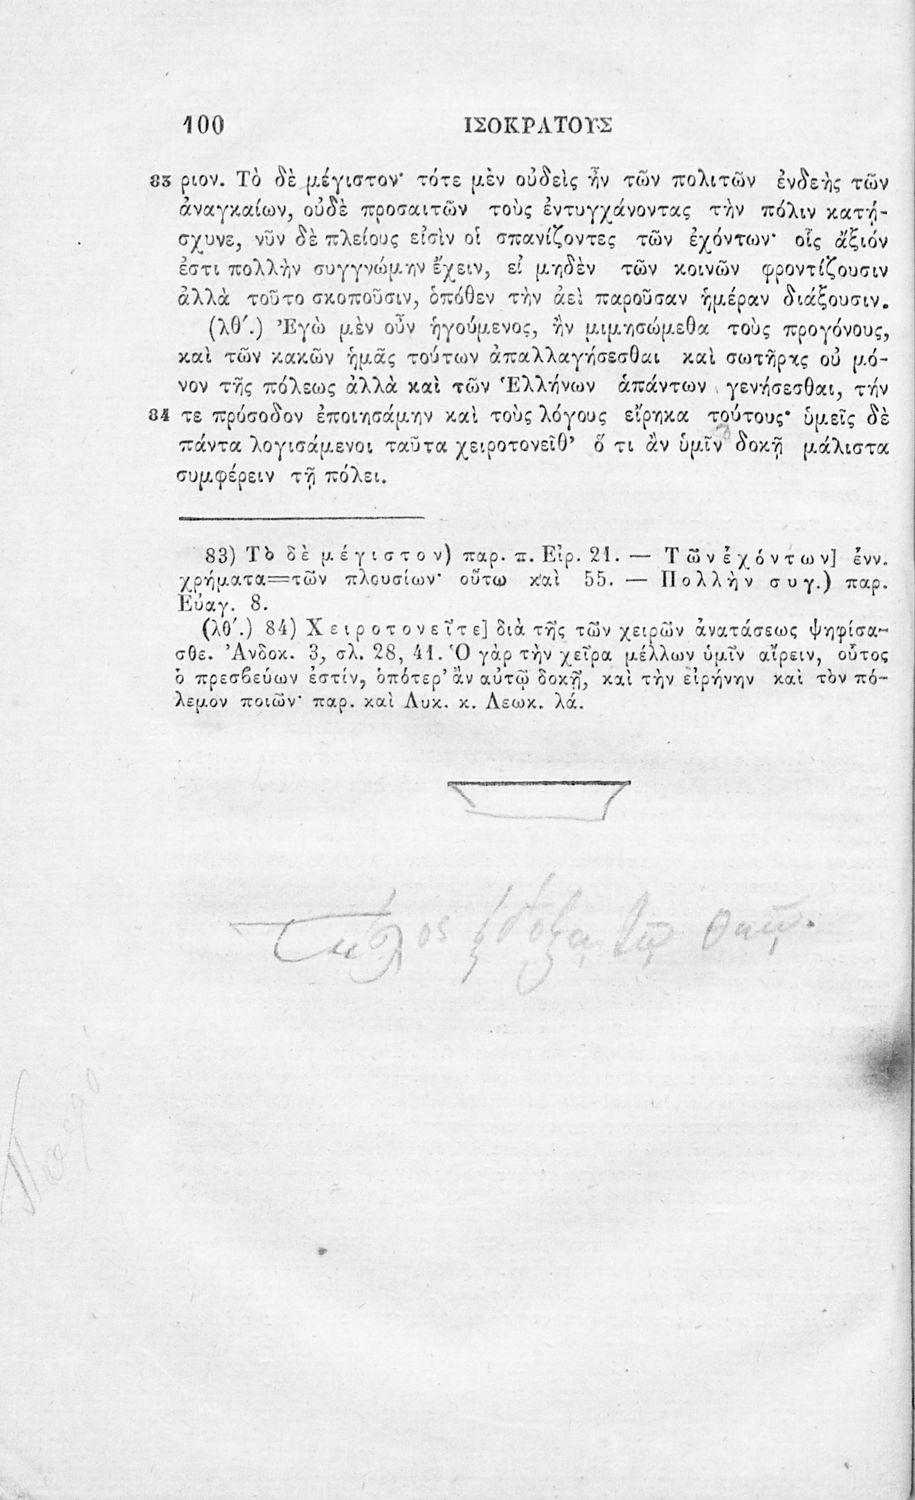 100 ΙΣΟΚΡΑΤΟΥΣ
83 ριον. Τὸ δὲ μέγιστον· τότε μὲν οὐδεὶς ἦν τῶν πολιτῶν ἐνδεὴς τῶν
ἀναγκαίων, οὐδὲ προσαιτῶν τοὺς ἐντυγχάνοντας τὴν πόλιν κατῄ-
σχυνε, νῦν δὲ πλείους εἰσὶν οἱ σπανίζοντες τῶν ἐχόντων· οἷς ἄξιόν
ἐστι πολλὴν συγγνώμην ἔχειν, εἰ μηδὲν τῶν κοινῶν φροντίζουσιν
ἀλλὰ τοῦτο σκοποῦσιν, ὁπόθεν τὴν ἀεὶ παροῦσαν ἡμέραν διάξουσιν.
(λθ΄.) Ἐγὼ μὲν οὖν ἡγούμενος, ἢν μιμησώμεθα τοὺς προγόνους,
καὶ τῶν κακῶν ἡμᾶς τούτων ἀπαλλαγήσεσθαι καὶ σωτῆρας οὐ μό-
νον τῆς πόλεως ἀλλὰ καὶ τῶν Ἑλλήνων ἁπάντων γενήσεσθαι, τήν
84 τε πρόσοδον ἐποιησάμην καὶ τοὺς λόγους εἴρηκα τούτους· ὑμεῖς δὲ
πάντα λογισάμενοι ταῦτα χειροτονεῖθ’ ὅ τι ἂν ὑμῖν δοκῇ μάλιστα
συμφέρειν τῇ πόλει.
83) Τὸ δὲ μέγιστον) παρ. π. Εἰρ. 21. — Τῶν ἐχόντων] ἐνν.
χρήματα=τῶν πλουσίων· οὕτω καὶ 55. — Πολλὴν συγ.) παρ.
Εὐαγ. 8.
(λθ΄.) 84) Χειροτονεῖτε] διὰ τῆς τῶν χειρῶν ἀνατάσεως ψηφίσα-
σθε. Ἀνδοκ. 3, σλ. 28, 41. Ὁ γὰρ τὴν χεῖρα μέλλων ὑμῖν αἴρειν, οὗτος
ὁ πρεσβεύων ἐστίν, ὁπότερ’ ἂν αὐτῷ δοκῇ, καὶ τὴν εἰρήνην καὶ τὸν πό-
λεμον ποιῶν· παρ. καὶ Λυκ. κ. Λεωκ. λά.
δόξα τῷ Θεῷ.